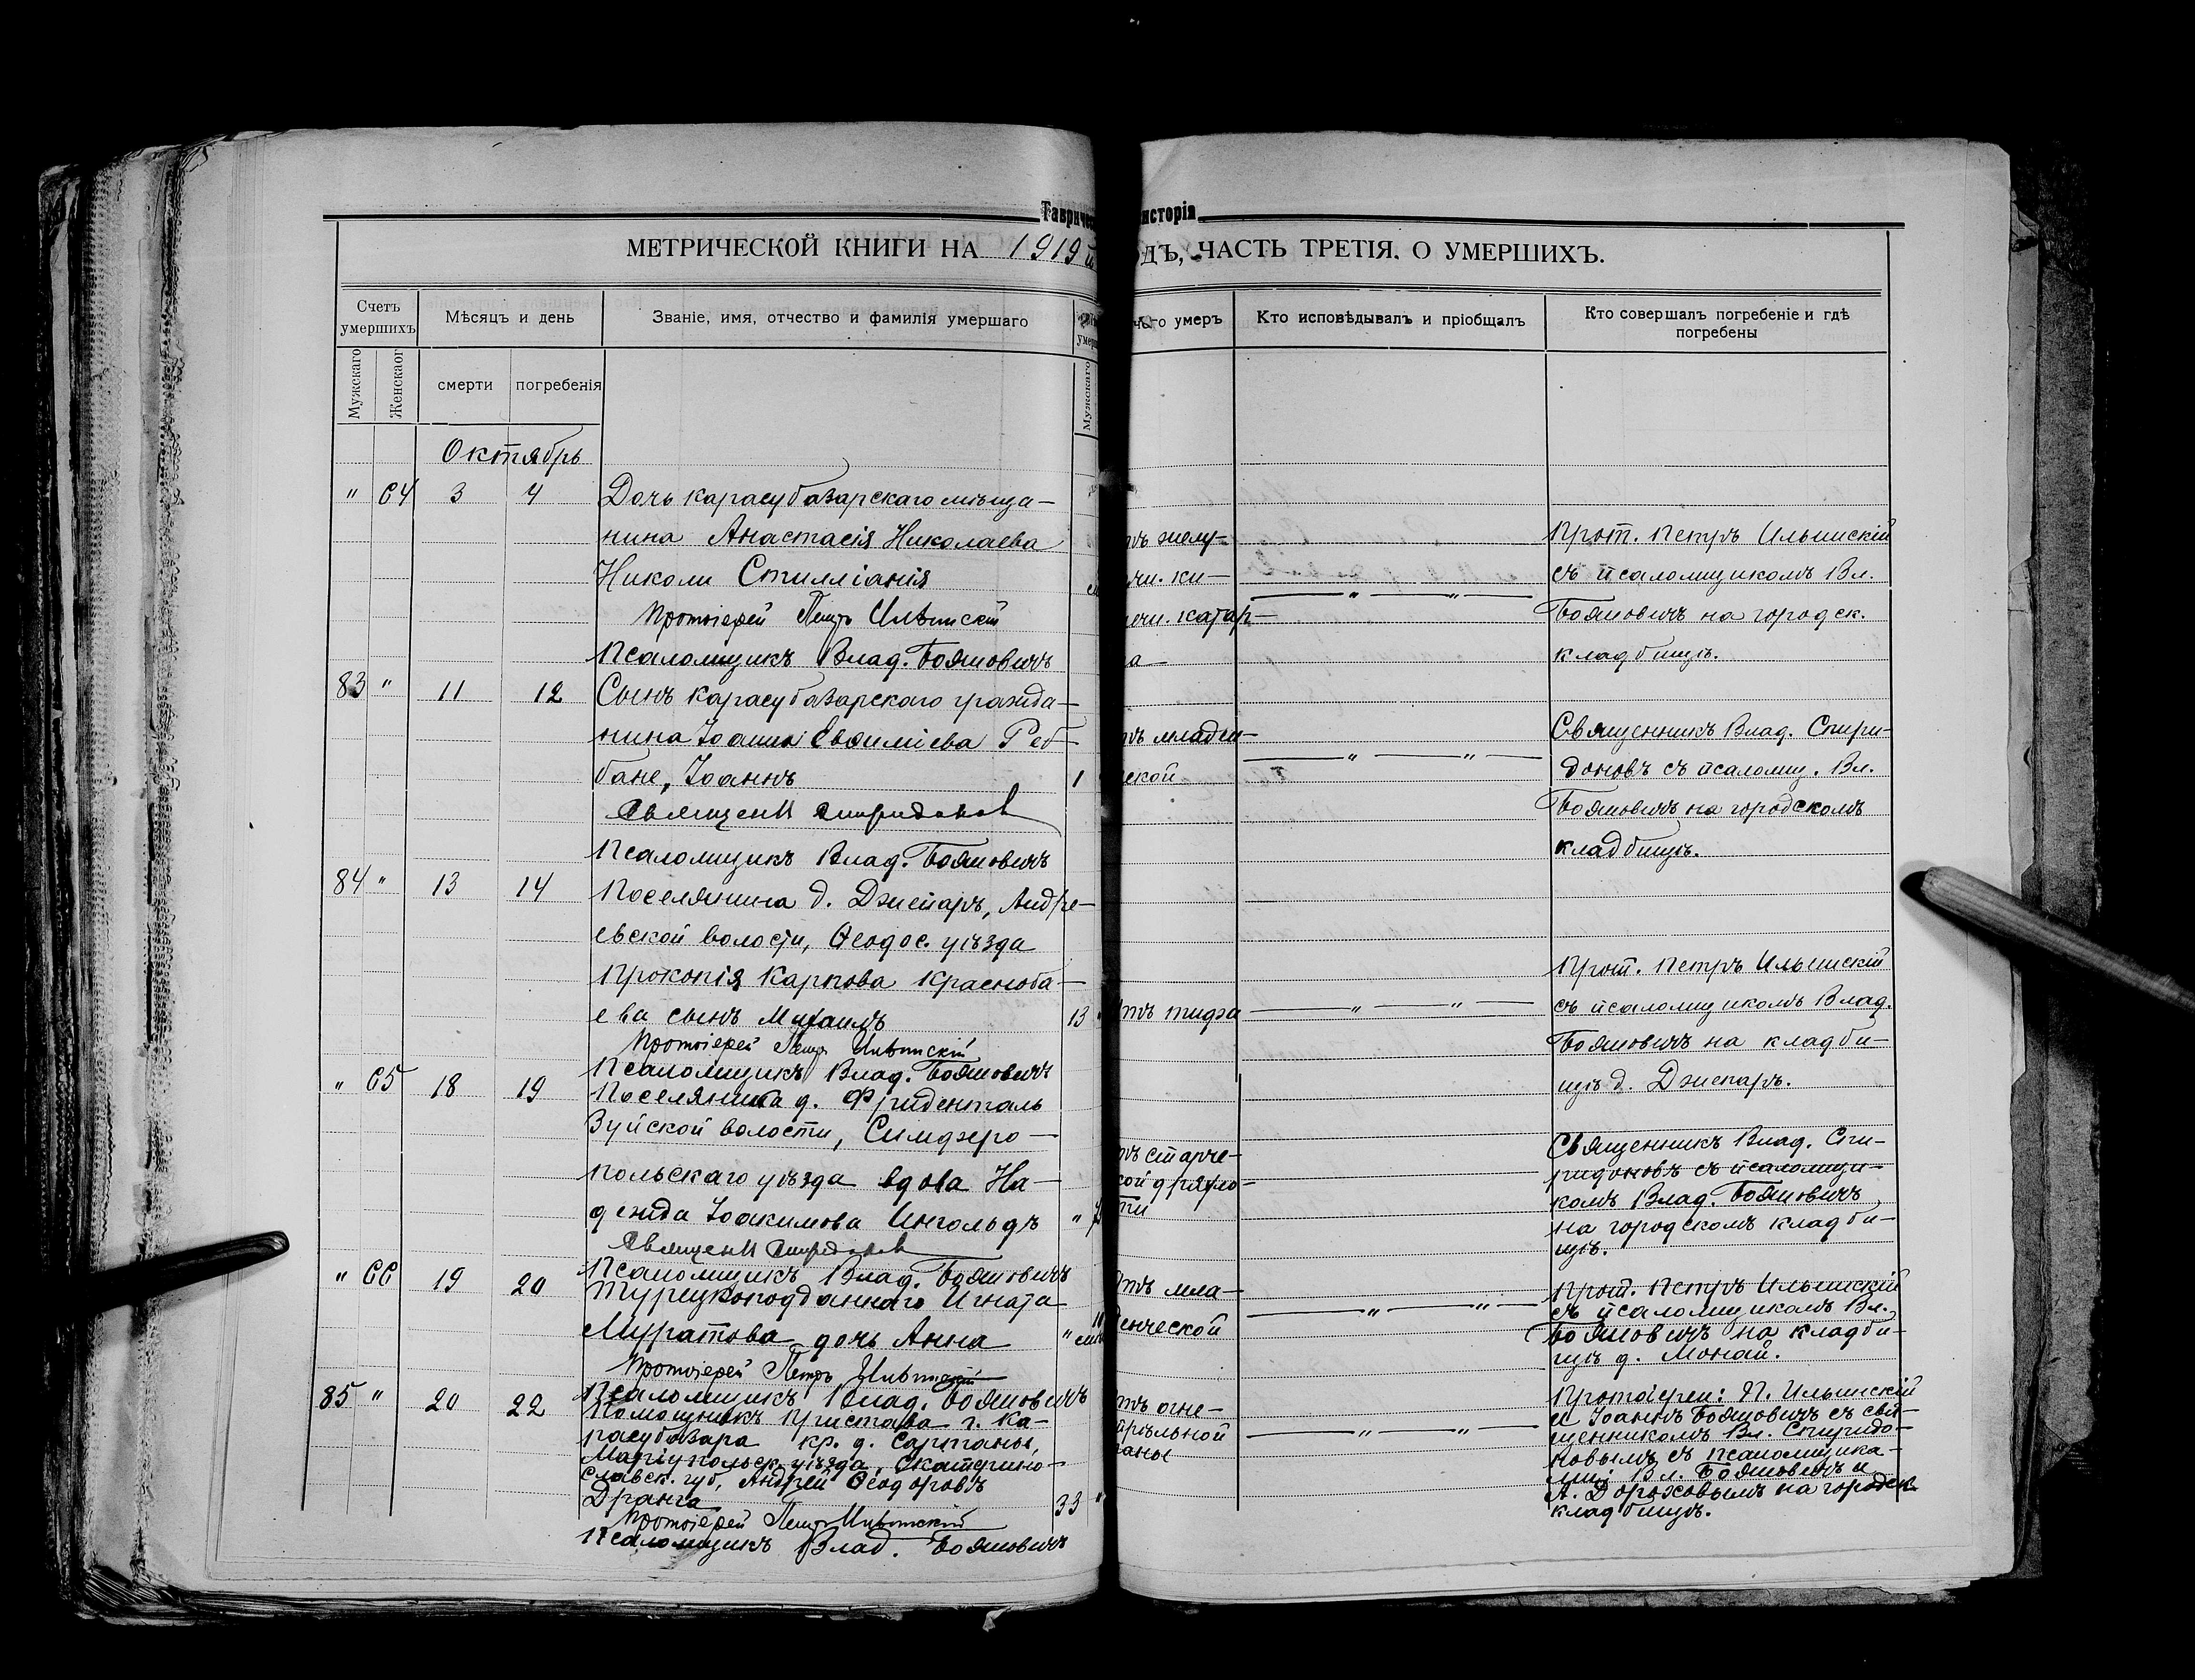 Тавриче
исторія
МЕТРИЧЕСКОЙ КНИГИ НА 1919 й
ОДЪ, ЧАСТЬ ТРЕТІЯ. О УМЕРШИХЪ.
Счетъ умершихъ
Мѣсяцъ и день
Званіе, имя, отчество и фамилія умершаго
чего умеръ
Кто исповѣдывалъ и пріобщалъ
Кто совершалъ погребеніе и гдѣ погребены
Мужскаго
Женскаог
смерти
погребенія
Мужскаго
Октябрь
" 64 3 4 Дочь карасубазарскаго мѣща-
нина Анастасія Николаева
Николи Стилліанія
Протоіерей Петръ Ильинскій
Псаломщикъ Влад. Бояновичъ
тъ желу-
чн. ки-
ечн. катар-
а
— " — " —
Прот. Петръ Ильинскій
съ псаломщикомъ Вл.
Бояновичъ на городск.
кладбищѣ.
83 " 11 12 Сынъ карасубазарскаго гражда-
нина Іоанна Евфиміева Реб-
бане, Іоаннъ
1
Священ Спиридонов
Псаломщикъ Влад. Бояновичъ
тъ младен-
ской
— " — " —
Священникъ Влад. Спири-
доновъ съ псаломщ. Вл.
Бояновичъ на городскомъ
кладбищѣ.
84 " 13 14 Поселянина д. Джепаръ, Андре-
евской волости, Ѳеодос. уѣзда
Прокопія Карпова Красноба-
ева сынъ Михаилъ
13 "
Протоіерей Петръ Ильинскій
Псаломщикъ Влад. Бояновичъ
отъ тифа
— " — " —
Прот. Петръ Ильинскій
съ псаломщикомъ Влад.
Бояновичъ на кладби-
щѣ д. Джепаръ.
" 65 18 19 Поселянина д. Фриденталь
Зуйской волости, Симферо-
польскаго уѣзда вдова На-
дежда Іоакимова Ингольдъ
"
Священ Спиридонов
Псаломщикъ Влад. Бояновичъ
тъ старче-
кой дряхло-
ти
Священникъ Влад. Спи-
ридоновъ съ псаломщи-
комъ Влад. Бояновичъ
на городскомъ кладби-
щѣ.
" 66 19 20 Турецкоподданнаго Игната
Муратова дочь Анна
"
Протоіерей Петръ Ильинскій
Псаломщикъ Влад. Бояновичъ
отъ мла-
денческой
— " — " —
Прот. Петръ Ильинскій
съ псаломщикомъ Вл.
Бояновичъ на кладби-
щѣ д. Монай.
85 " 20 22 Помощникъ Пристава г. Ка-
расубазара кр. д. Сартаны,
Маріупольск. уѣзда, Екатерино-
славск. губ, Андрей Ѳеодоровъ
Дранга
33 "
Протоіерей Петръ Ильинскій
Псаломщикъ Влад. Бояновичъ
тъ огне-
стрѣльной
раны
— " — " —
Протоіереи: П. Ильинскій
и Іоаннъ Бояновичъ съ свя-
щенникомъ Вл. Спиридо-
новымъ съ псаломщика-
ми Вл. Бояновичъ и
А. Дороховымъ на городск
кладбищѣ.